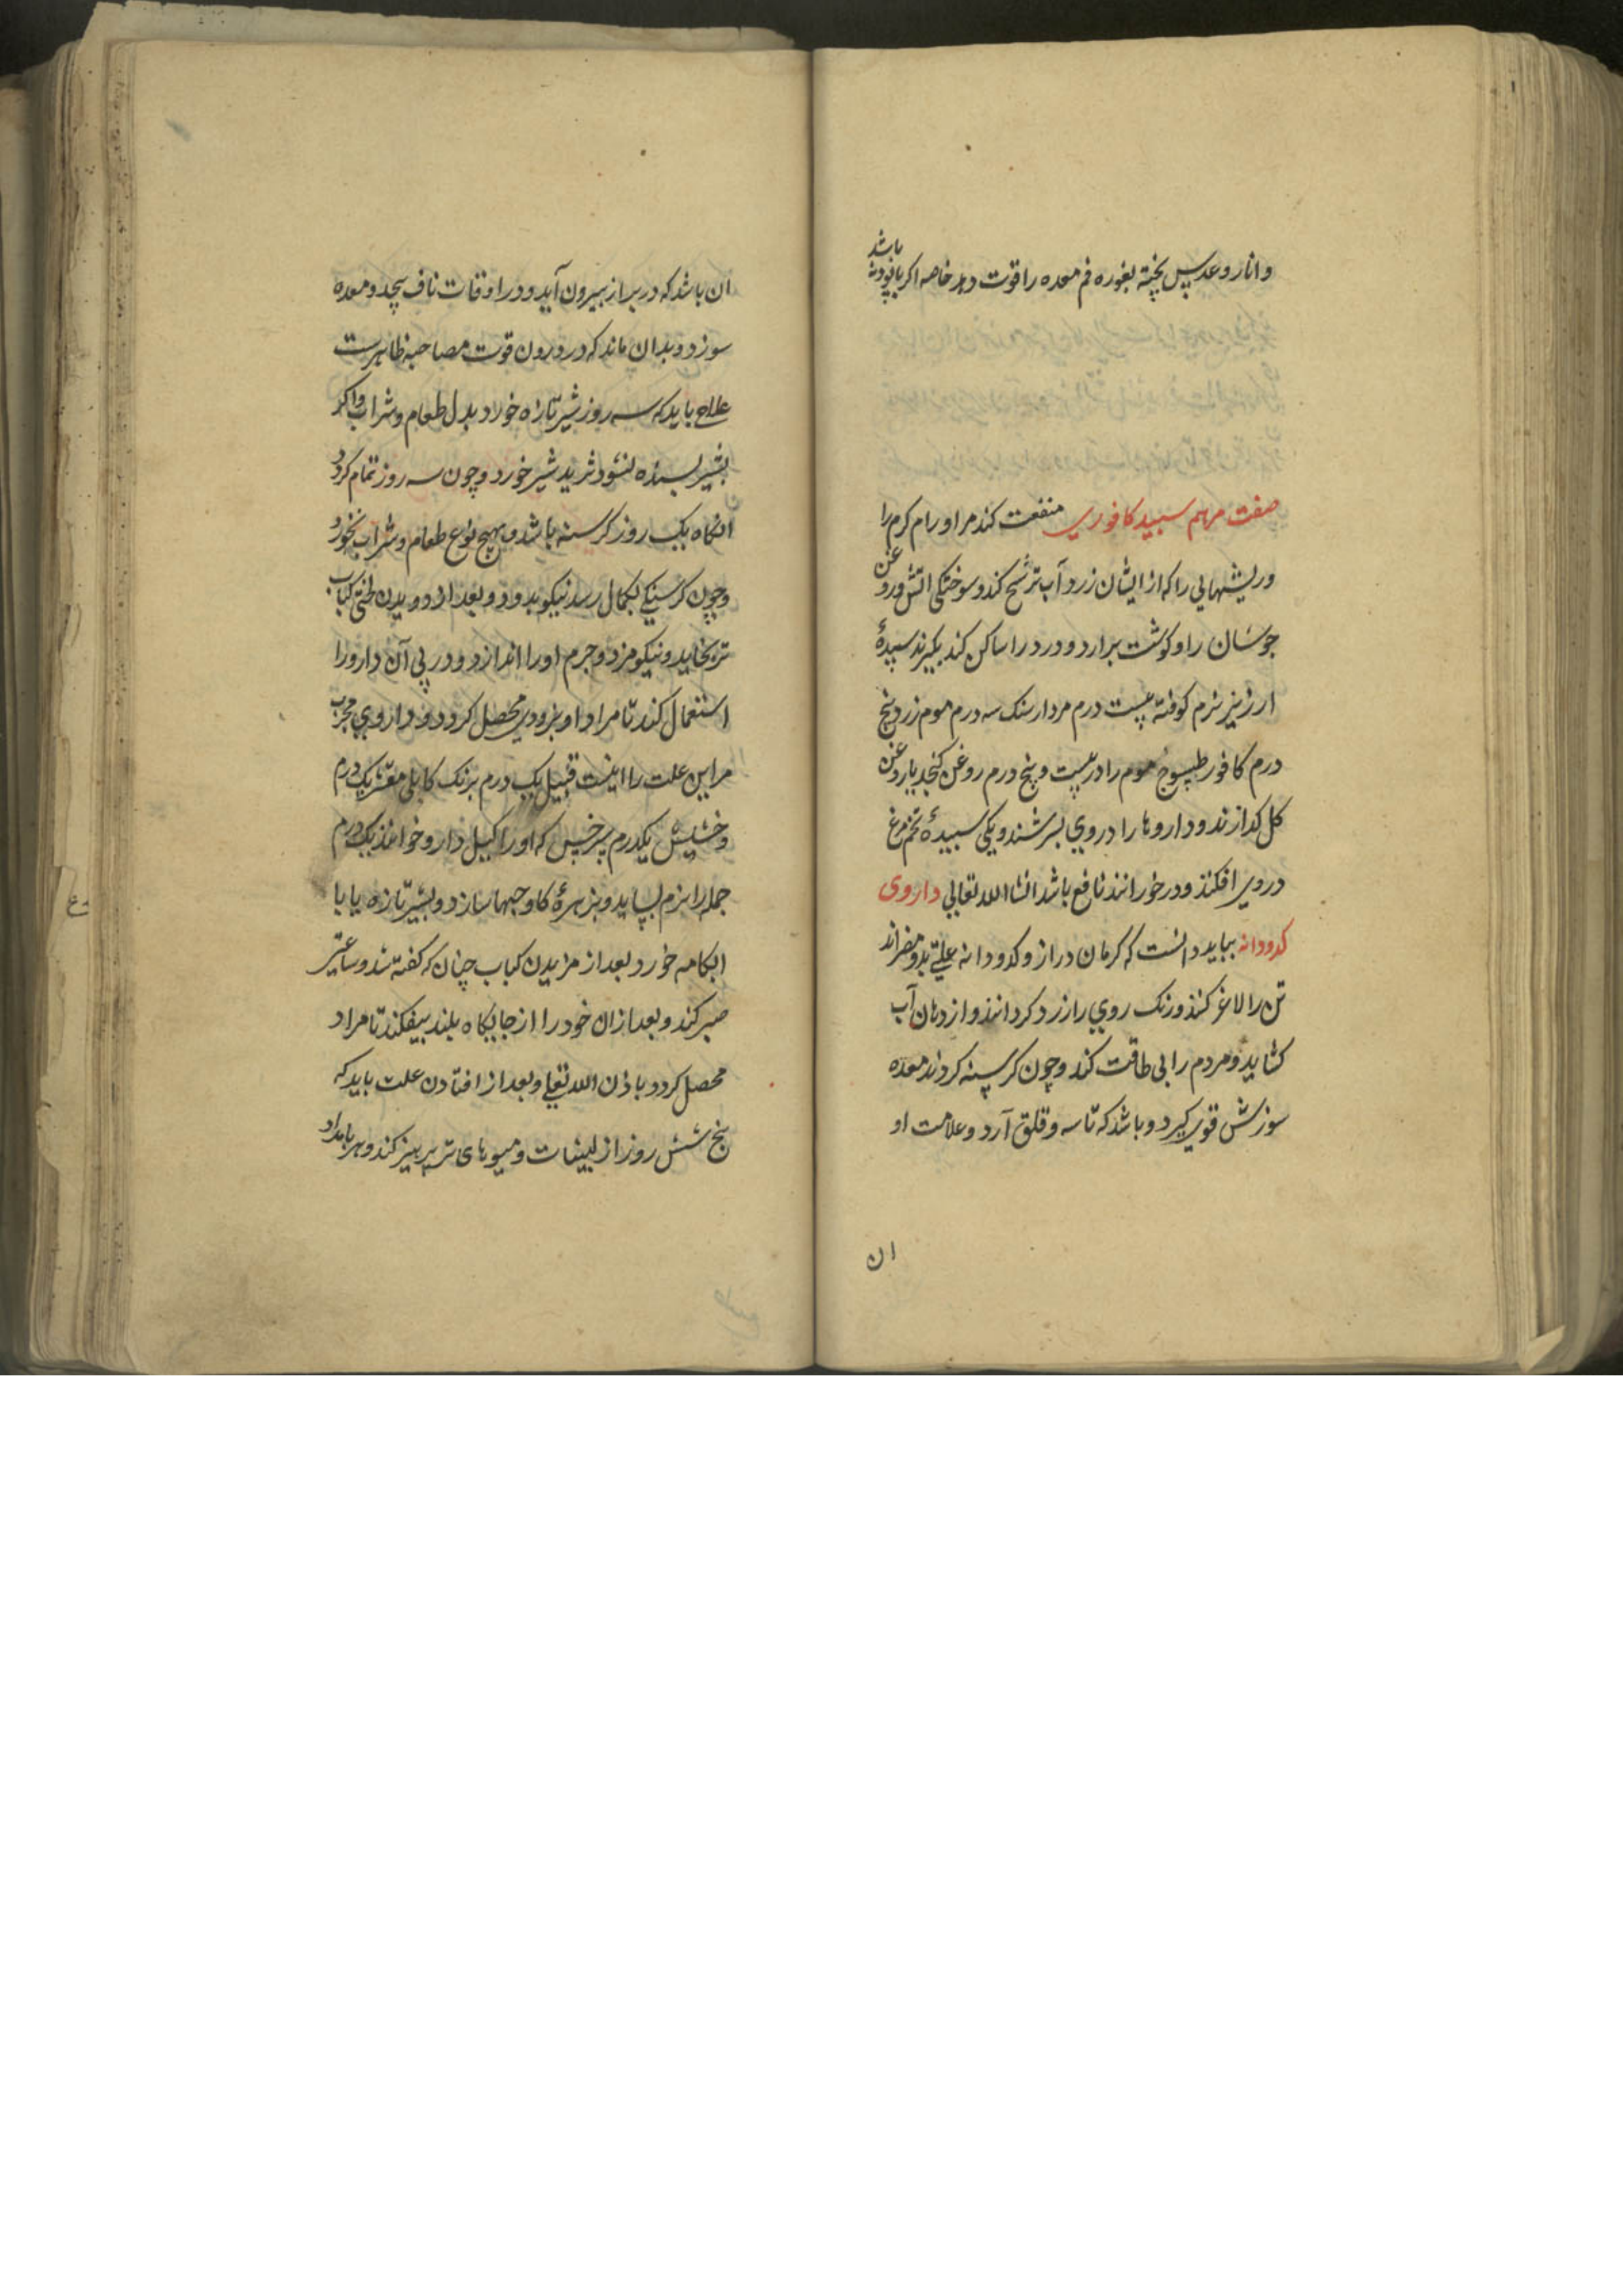 وانار و عدس پخته بغوره فم معده را قوت دهد خاصه اکر با پودنه باشد
صفت مرهم سبید کافوری منفعت کند مر اورام کرم را
و ریشهایی را که از ایشان زرد آب ترشح کند و سوختکی اتش و روغن
جوشان را و کوشت برارد و درد را ساکن کند بکیرند سپیدۀ
ارزیز نرم کوفته بیست درم مردارسنک سه درم موم زرد پنج
درم کافور طسوج موم را در بیست و پنج درم روغن کنجد یا روغن
کل کدازند و داروها را در وی بسرشند و یکی سبیدۀ تخم مرغ
در وی افکنند و در خورانند نافع باشد انشاالله تعالی داروی
کدودانه بباید دانست که کرمان دراز و کدودانه علتی بد و مضراند
تن را لاغر کنند و رنک روی را زرد کردانند و از دهان آب
کشاید و مردم را بی طاقت کند و چون کرسنه کردند معده
سوزش قوی کیرد و باشد که تاسه و قلق آرد و علامت او
ان
ان باشد که در براز بیرون آید و در اوقات ناف پیچد و معده
سوزد و بدان ماند که در درون قوت مصاحبه ظاهرست
علاج باید که سه روز شیر تازه خورد بدل طعام و شراب و اکر
بشیر بسنده نشود ثرید شیر خورد و چون سه روز تمام کردد
انکاه یک روز کرسنه باشد و هیچ نوع طعام و شراب نخورد
و چون کرسنکی بکمال رسد نیکو بدود و بعد از دویدن لختی کباب
تره بخاید و نیکو مزد و جرم او را اندازد و در پی آن دارو را
استعمال کند تا مراد او بزودی محصل کردد و داروی مجرب
مر این علت را اینست قنبیل یک درم برنک کابلی مقشر یک درم
و خشیش یکدرم سرخس که اورا کیل دارو خوانند یک درم
جمله را نرم بساید و بزهرۀ کاو حبها سازد و بشیر تازه یا با
ابکامه خورد بعد از مزیدن کباب چنان که کفته شد و ساعتی
صبر کند و بعد از ان خود را از جایکاه بلند بیفکند تا مراد
محصل کردد باذن الله تعلی و بعد از افتادن علت باید که
پنج شش روز از لبنیات و میوهای تر پرهیز کند و هر بامداد